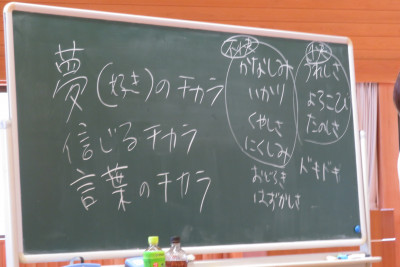 夢(好き)のチカラ
信じるチカラ
言葉のチカラ
不快
かなしみ
いかり
くやしさ
にくしみ
おどろき
はずかしさ
うれしさ
よろこび
たのしさ
ドキドキ